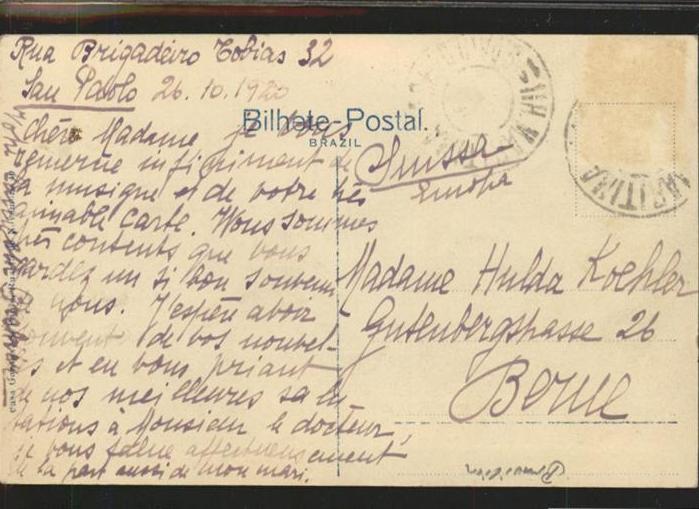 Rua Brigadeiro Tobias 32
San Paolo 26.10.1920
Bilhete-Postal.
BRAZIL
Chère Madame, je vous
remercie infiniment de
la musique et de votre très
aimable carte. Nous sommes
très contents que vous
gardez un si bon souvenir
de nous. J'espère avoir
souvent de vos nouvel-
les et en vous priant
de nos meilleures salu-
tations à Monsieur le docteur,
je vous salue affectueusement
de la part aussi de mon mari.
Suissa
Europa
Madame Hulda Koehler
Gutenbergstrasse 26
Berne
Brasilien